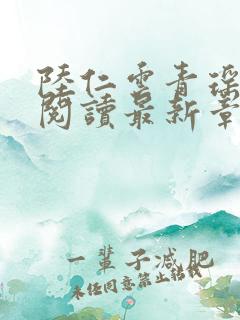 陸仁雲青瑤
閱讀最新章
一輩子減肥
未经同意禁止转载